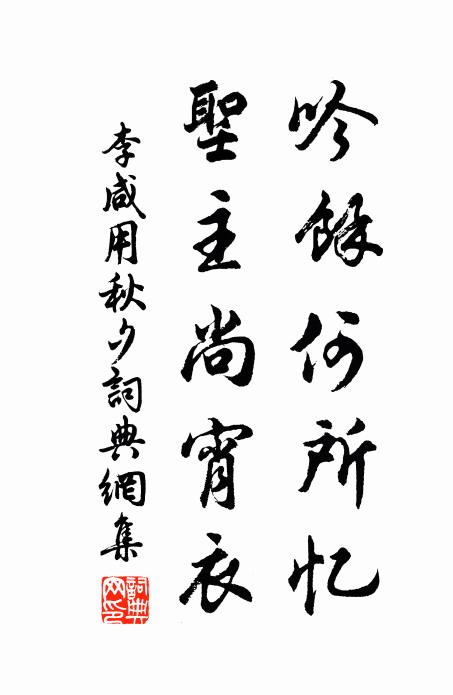 吟餘何所忆
聖主尚宵衣
李咸用秋夕詞典網集
詞典网印